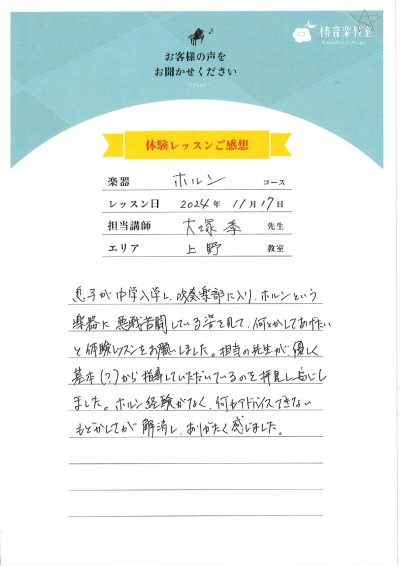 お客様の声を
お聞かせください
Voice
椿音楽教室
体験レッスンご感想
楽器 ホルン コース
レッスン日 2024年 11月17日
担当講師 大塚 季 先生
エリア 上野 教室
息子が中学入学し、吹奏楽部に入り、ホルンという
楽器に悪戦苦闘している姿を見て、何とかしてあげたい
と体験レッスンをお願いしました。担当の先生が優しく
基本(?)から指導していただいているのを拝見し、安心し
ました。ホルン経験がなく、何もアドバイスできない
もどかしさが解消し、ありがたく感じました。